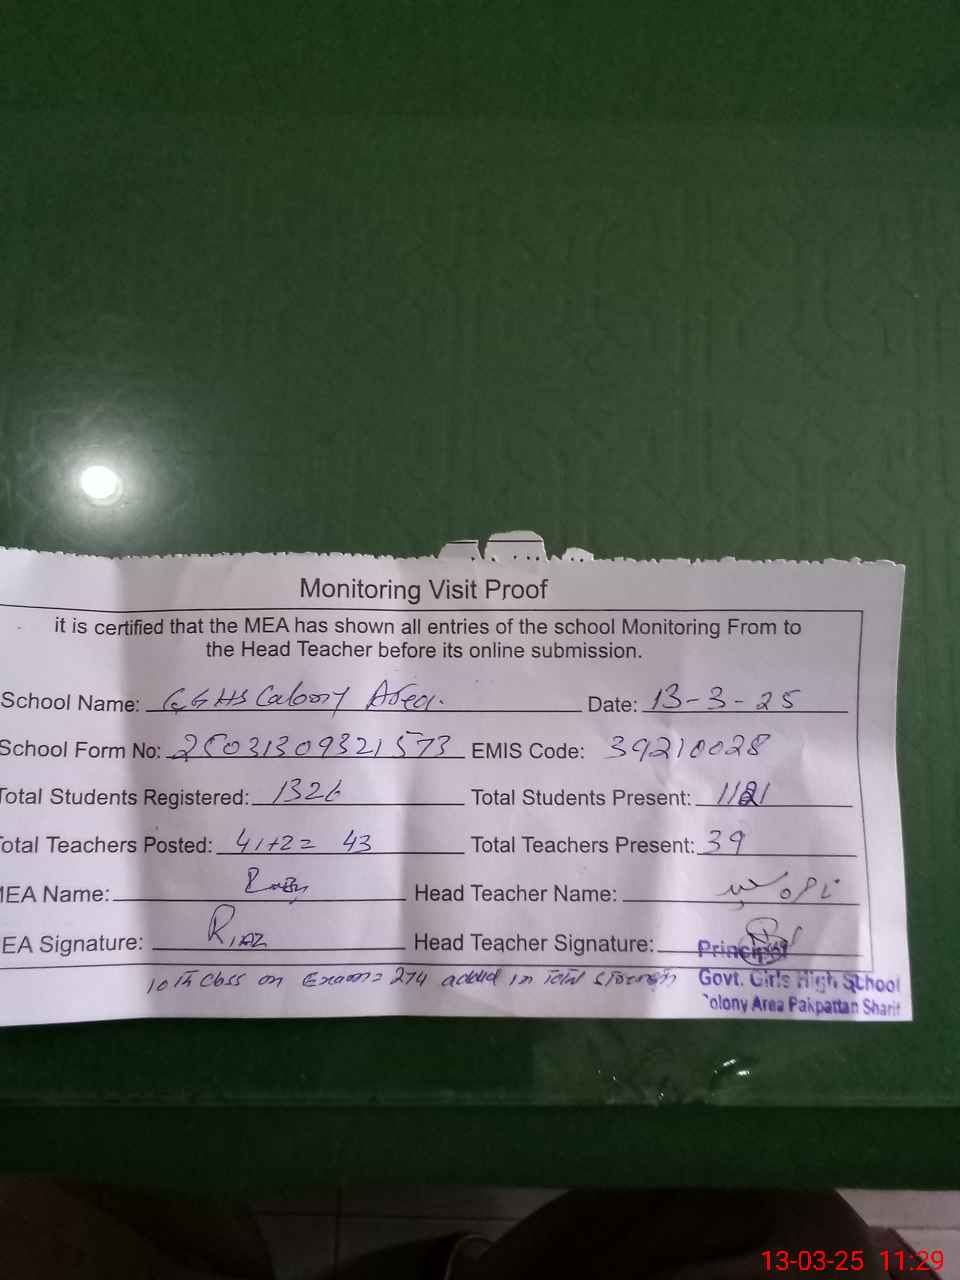 Monitoring Visit Proof
it is certified that the MEA has shown all entries of the school Monitoring From to
the Head Teacher before its online submission.
School Name: GGHS Colony Area. Date: 13-3-25
School Form No: 25031309321573 EMIS Code: 39210028
Total Students Registered: 1326 Total Students Present: 1121
Total Teachers Posted: 41+2= 43 Total Teachers Present: 39
MEA Name: Head Teacher Name:
EA Signature: Riaz Head Teacher Signature:
Principal
10th class on Exam= 274 added in Total strength
Govt. Girls High School
Colony Area Pakpattan Sharif
13-03-25 11:29